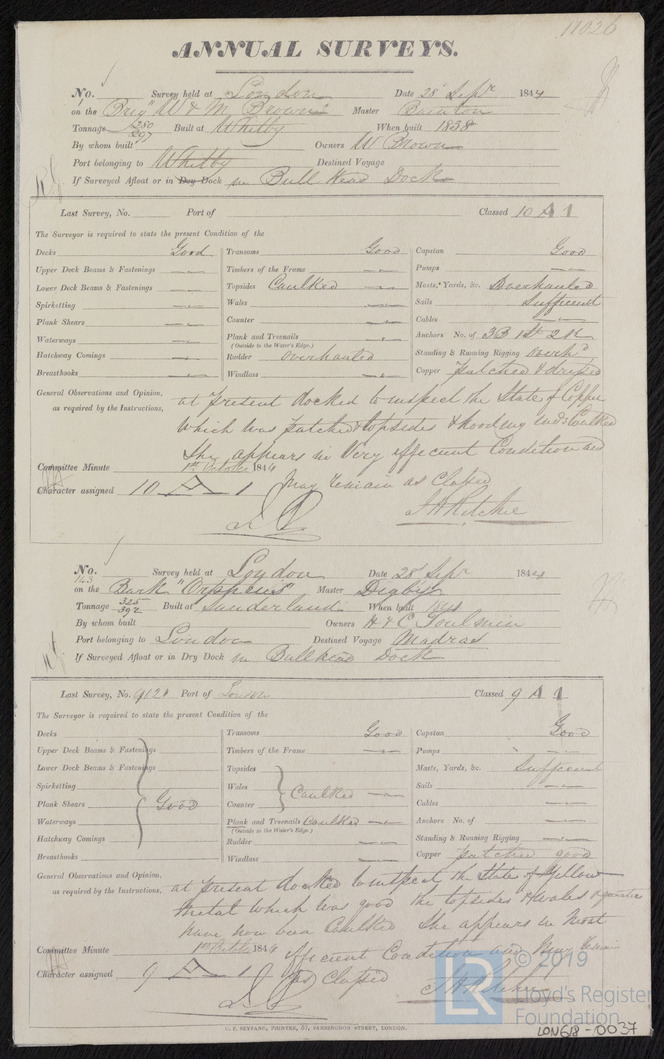 11026
ANNUAL SURVEYS.
No. Survey held at London Date 28 Sepr 1844
on the Brig "W & M Brown" Master
Tonnage 280 297 Built at Whitby When built 1838
By whom built Owners W Brown
Port belonging to Whitby Destined Voyage
If Surveyed Afloat or in Dry Dock in Bull Head Dock
Last Survey, No. Port of Classed 10 A 1
The Surveyor is required to state the present Condition of the
Decks Good Transoms Good Capstan Good
Upper Deck Beams & Fastenings Timbers of the Frame Pumps
Lower Deck Beams & Fastenings Topsides Caulked Masts, Yards, &c. Overhauled
Spirketting Wales Sails Sufficient
Plank Shears Counter Cables
Waterways Plank and Treenails (Outside to the Water's Edge.) Anchors No. of 3B 1St 2K
Hatchway Comings Rudder overhauled Standing & Running Rigging overhd
Breasthooks Windlass Copper patched & dressed
General Observations and Opinion, at present docked to inspect the State of Copper
as required by the Instructions, which was patched topsides & hooding ends Caulked
She appears in Very efficient Condition and
Committee Minute 1st October 1844 May remain as Classed
Character assigned 10 A 1 J A Ritchie
No. 143 Survey held at London Date 28 Sepr 1844
on the Bark "Orpheus" Master Digby
Tonnage 325 392 Built at Sunderland When built
By whom built Owners H & C Toulmin
Port belonging to London Destined Voyage Madras
If Surveyed Afloat or in Dry Dock in Bullhead Dock
Last Survey, No. Port of London Classed 9 A 1
The Surveyor is required to state the present Condition of the
Decks Transoms Good Capstan Good
Upper Deck Beams & Fastenings Timbers of the Frame Pumps
Lower Deck Beams & Fastenings Topsides Masts, Yards, &c. Sufficient
Spirketting Wales Caulked Sails
Plank Shears Good Counter Cables
Waterways Plank and Treenails Caulked (Outside to the Water's Edge.) Anchors No. of
Hatchway Comings Rudder Standing & Running Rigging
Breasthooks Windlass Copper patched good
General Observations and Opinion, at present docked to inspect the State of Yellow
as required by the Instructions, Metal which was good the topsides & wales
have now been Caulked She appears in Most
Committee Minute 1st October 1844 efficient Condition and May remain
Character assigned 9 A 1 as Classed J A Ritchie
C. F. SEYFANG, PRINTER, 57, FARRINGDON STREET, LONDON.
LR © 2019
Lloyd's Register
Foundation
LON618-0037